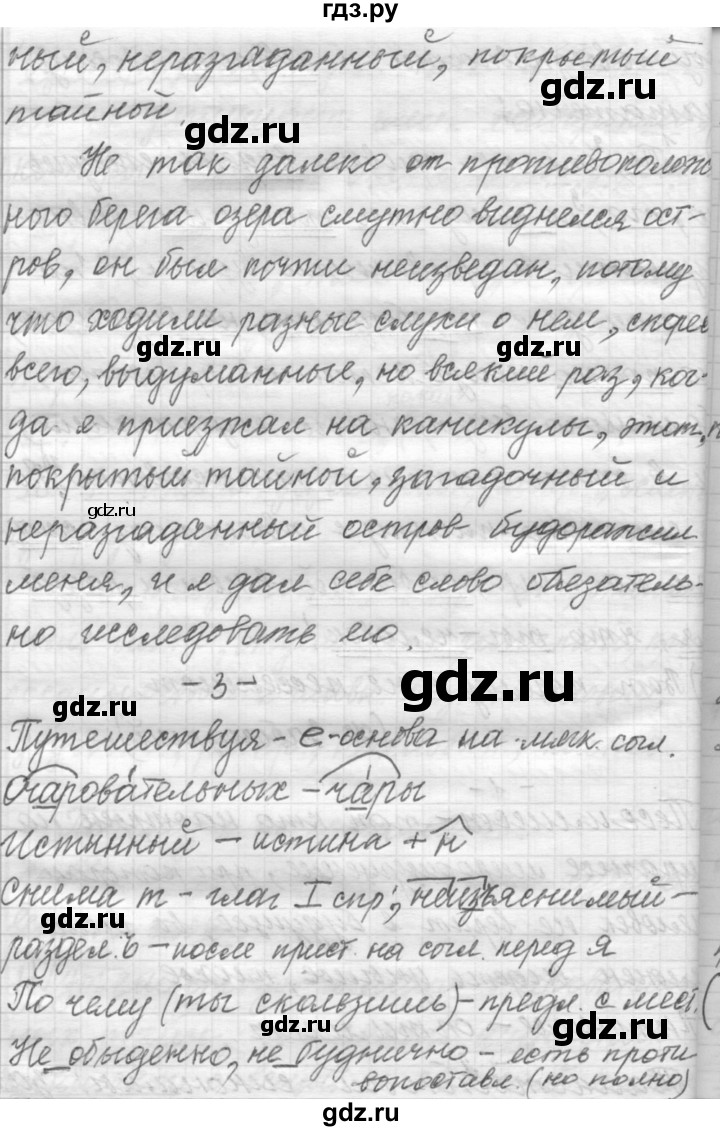 гдз.ру
ный, неразгаданный, покрытый
gdz.ru
тайной.
gdz.ru
Не так далеко от противополож
ного берега озера смутно виднелся ост-
ров, он был почти неизведан, потому
что ходили разные слухи о нем, скорее
gdz.ru
gdz.ru
всего, выдуманные, но всякий раз, ког-
да я приезжал на каникулы, этот,
покрытый тайной, загадочный и
gdz.ru
неразгаданный остров будоражил
gdz.ru
меня, и я дал себе слово обезатель-
но исследовать его.
gdz.ru
- 3 -
gdz.ru
Путешествуя - е - основа на мягк. согл.
Очаровательных - чары
gdz.ru
Истинный - истина + н
Снима т - глаг I спр.; неизъяснимый -
gdz.ru
gdz.ru
раздел. ъ - после прист. на согл. перед я
По чему (ты скользишь) - предл. с мест.
gdz.ru
gdz.ru
Не обыденно, не буднично - есть проти
вопоставл. (но полно)
gdz.ru